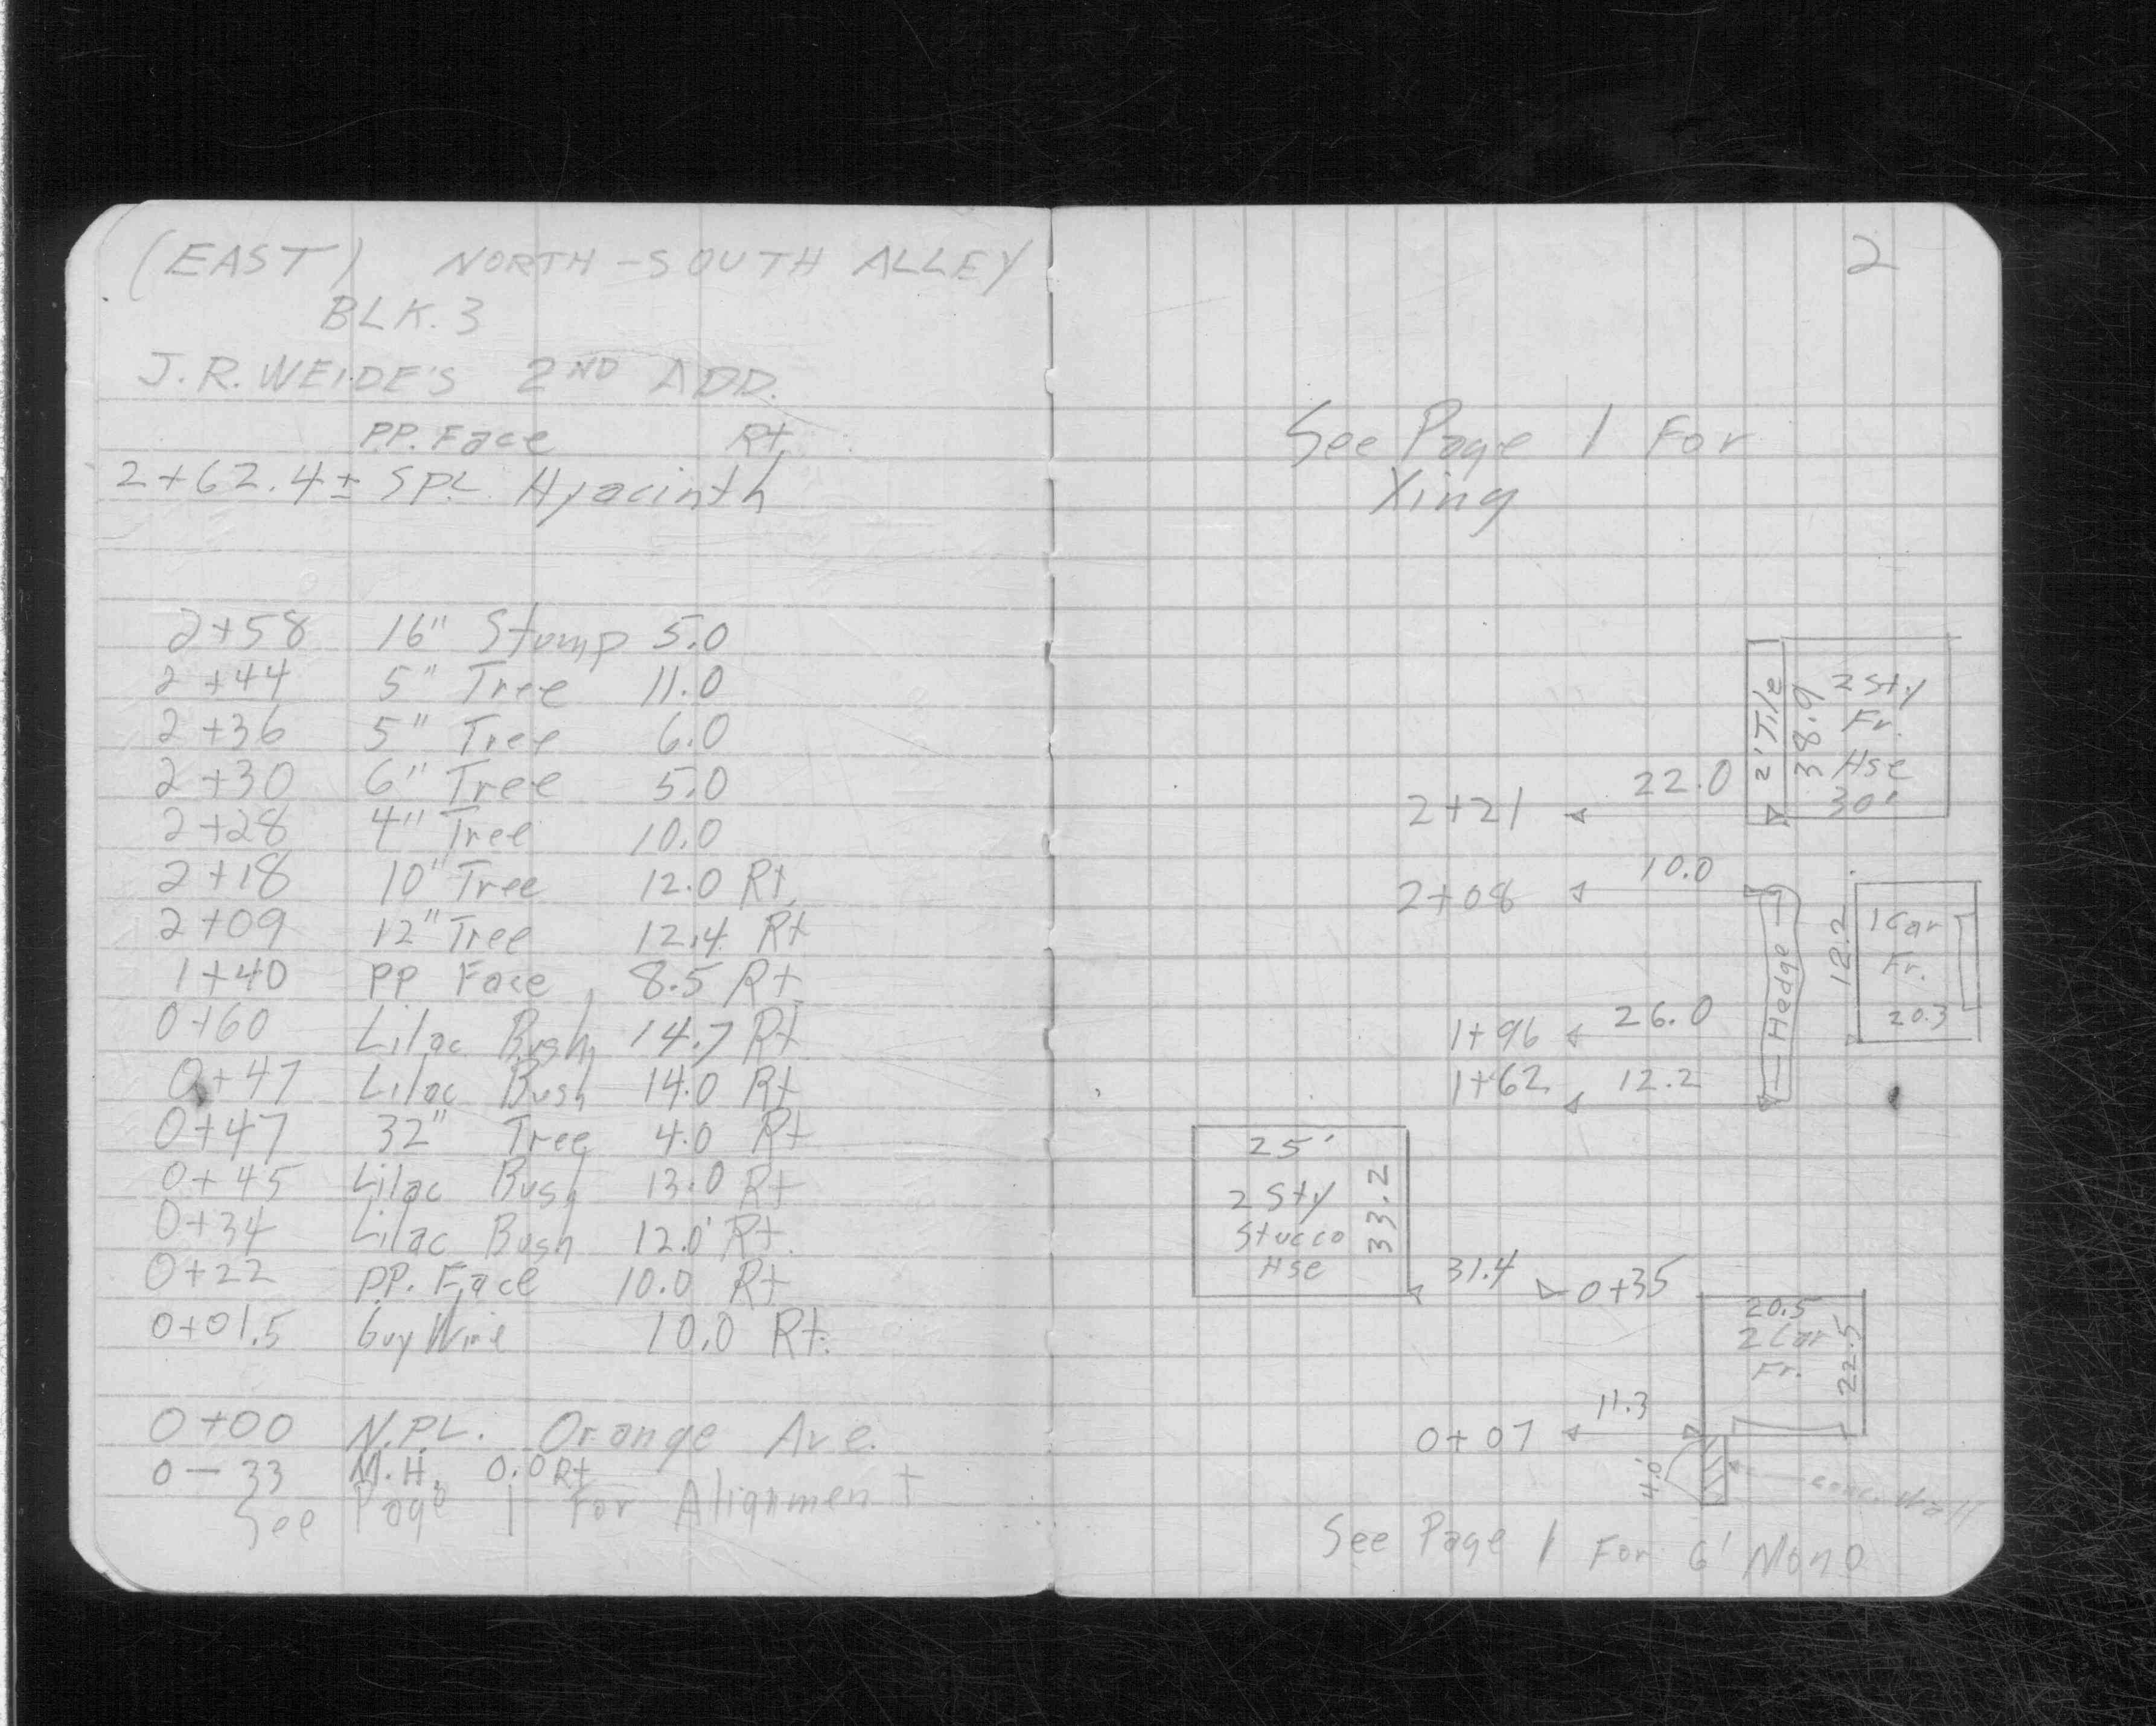 (EAST) NORTH-SOUTH ALLEY
BLK. 3
J.R. WEIDE'S 2ND ADD.
PP. Face Rt.
2+62.4± SPL Hyacinth
2+58 16" Stump 5.0
2+44 5" Tree 11.0
2+36 5" Tree 6.0
2+30 6" Tree 5.0
2+28 4" Tree 10.0
2+18 10" Tree 12.0 Rt.
2+09 12" Tree 12.4 Rt
1+40 PP Face 8.5 Rt.
0+60 Lilac Bush 14.7 Rt
0+47 Lilac Bush 14.0 Rt
0+47 32" Tree 4.0 Rt
0+45 Lilac Bush 13.0 Rt
0+34 Lilac Bush 12.0' Rt.
0+22 PP. Face 10.0 Rt
0+01.5 Guy Wire 10.0 Rt.
0+00 N.PL. Orange Ave.
0-33 M.H. 0.0 Rt
See Page 1 For Alignment
2
See Page 1 For
Xing
2' Tile
38.9
2 Sty
Fr.
Hse
30'
2+21 22.0
2+08 10.0
Hedge
12.2
1 Car
Fr.
20.3
1+96 26.0
1+62 12.2
25'
2 Sty
Stucco
Hse
33.2
31.4 0+35
20.5
2 Car
Fr.
22.5
0+07 11.3
4.0'
conc. wall
See Page 1 For 6' Mono